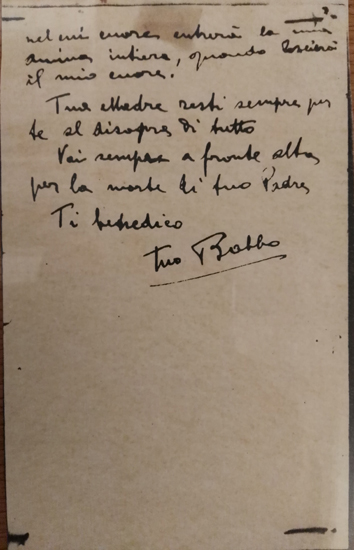 nel cui cuore entrerà la mia
anima intiera, quando lascierà
il mio cuore.
Tua Madre resti sempre per
te al disopra di tutto
Vai sempre a fronte alta
per la morte di tuo Padre
Ti benedico
tuo Babbo